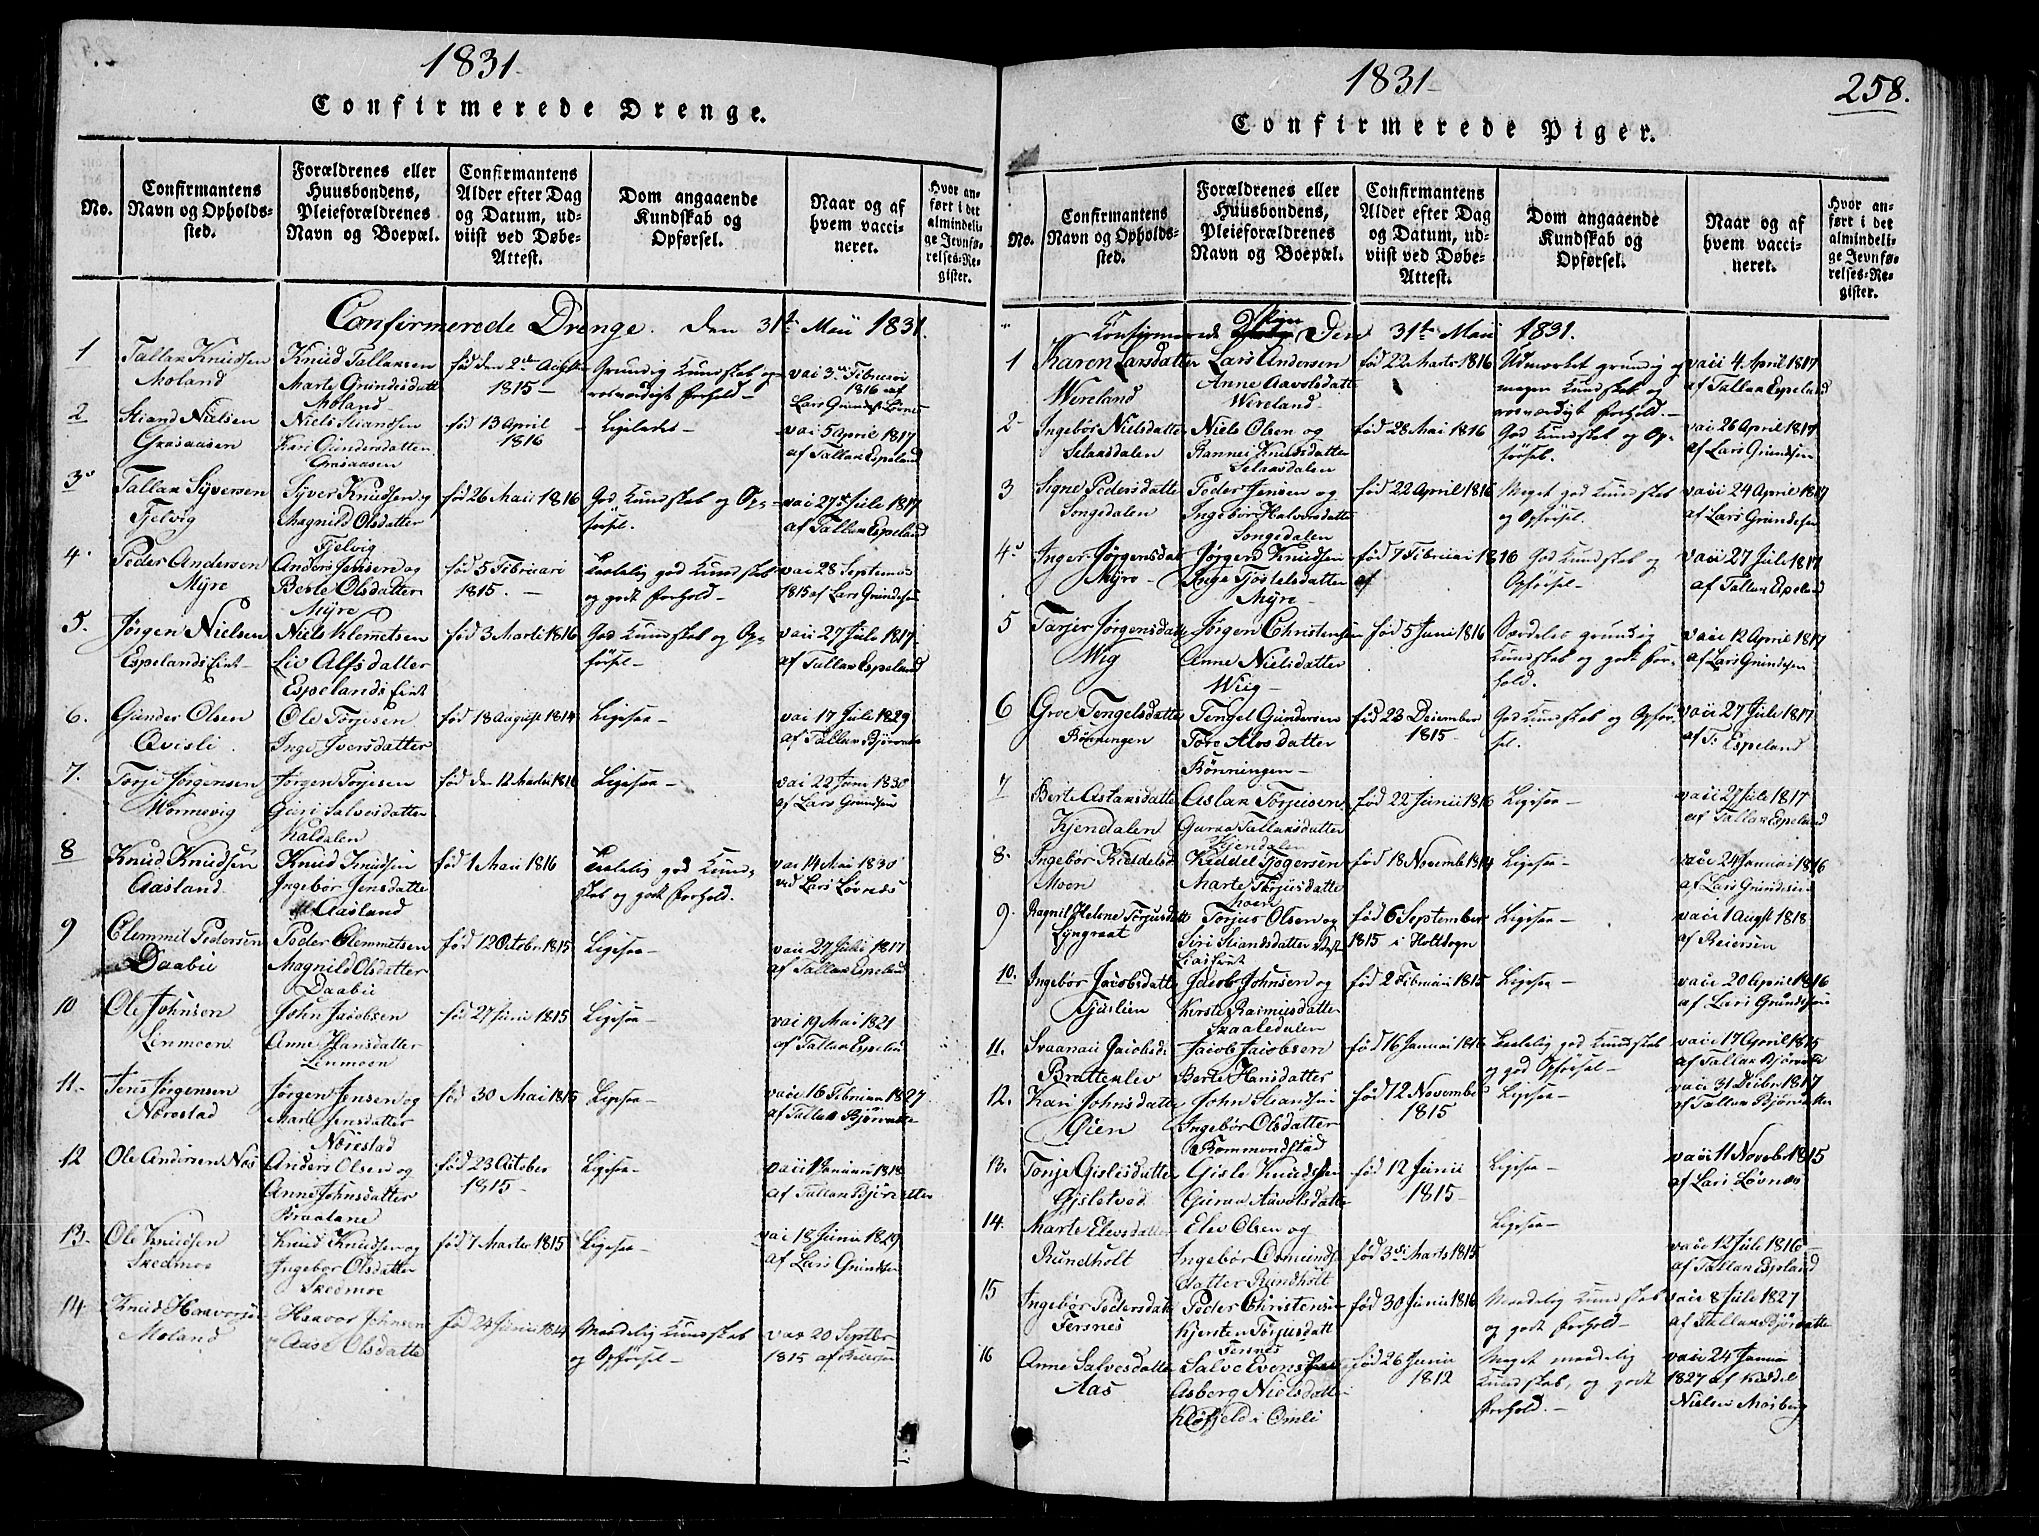 1831
Confirmerede Drenge.
No.
Confirmantens
Navn og Opholds-
sted.
Forældrenes eller
Huusbondens,
Pleieforældrenes
Navn og Boepæl.
Confirmantens
Alder efter Dag
og Datum, ud-
viist ved Døbe-
Attest.
Dom angaaende
Kundskab og
Opførsel.
Naar og af
hvem vacci-
neret.
Hvor an-
ført i det
almindeli-
ge Jevnfø-
relses-Re-
gister.
Confirmerede Drenge. den 31te Maii 1831.
1
Tallak Knudsen
Moland
Knud Tallaksen
Marte Gundersdatt
Moland
fød den 2den August
1815
Grundig Kundskab og
roesværdigt Forhold
vac 3die Februari
1816 af
Lars Grundes. Løvnes
2
Stiand Nielsen
Grasaasen
Niels Stiandsen
Kari Gundersdatter
Grasaasen
fød 13 April
1816
Ligeledes
vac 5 April 1817
af Tallak Espeland
3
Tallak Syversen
Fjelvig
Syver Knudsen og
Magnild Olsdatter
Fjelvig
fød 26 Marts 1816
God Kundskab og Op-
førsel.
vac 27de Julii 1817
af Tallak Espeland
4
Peder Andersen
Myre
Anders Jensen og
Berte Olsdatter
Myre
fød 5 Februari
1815.
Taalelig god Kundskab
og godt Forhold
vac 28 Septembr
1815 af Lars Grundesen
5.
Jørgen Nielsen
Espelands Eiet
Niels Klemetsen
Liv Alfsdatter
Espelands Eiet
fød 3 Marti 1816
God Kundskab og Op-
førsel
vacc 27 Julii 1817
af Tallak Espeland
6.
Gunder Olsen
Qvisli.
Ole Torjesen
Inge Iversdatter
fød 18 August 1814
Ligesaa
vac 17 Julii 1829
af Tallak Bjørvatn
7.
Torje Jørgensen
Mørnevig
Jørgen Torjesen
Guri Salvesdatter
Kaldalen
fød den 12 Martii 1816
Ligesaa
vac 22 Juni 1830
af Lars Grundsen
8
Knud Knudsen
Aasland
Knud Knudsen
Ingebør Jensdatte
Aasland
fød 1 Maii 1816
Taalelig god Kund-
skab og godt Forhold.
vac 14 Mai 1830
ved Lars Løvnæs
9
Clemmit Pedersen
Daabu
Peder Clemmetsen
Magnild Olsdatter
Daabu
fød 12 October 1815
Ligesaa
vacc 27 Julii 1817
af Tallak Espelnd
10
Ole Johnsen
Linmoen
John Jacobsen
Anne Hansdatter
Linmoen
fød 27 Junii 1815
Ligesaa
vac 19 Mai 1821
af Tallak Espelnd
11
Jens Jørgensen
Nærestad
Jørgen Jensen og
Marte Jensdatter
Nærestad
fød 30 Mai 1815
Ligesaa
vacc 16 Februar 1827
af Tallak Bjørvatte
12
Ole Andersen Næs
Anders Olsen og
Anne Johnsdatter
Braalane
fød 23 October
1815
Ligesaa
vacc 1 Januar 1818
af Tallak Bjørvatten
13.
Ole Knudsen
Skedmoe
Knud Knudsen og
Ingebør Olsdatter
Skedmoe
fød 7 Marter 1815
Ligesaa
vac 18 Junii 1829
af Lars Grundsen
14
Knud Haavorsen
Moland
Haavor Johnsen
Aase Olsdatte
fød 24 Junii 1814
Maadelig Kundskab
og Opførsel
vac 20 Septbr
1815 af Reiersen
1831
258.
Confirmerede Piger.
No.
Confirmantens
Navn og Opholds-
sted.
Forældrenes eller
Huusbondens,
Pleieforældrenes
Navn og Boepæl.
Confirmantens
Alder efter Dag
og Datum, ud-
viist ved Døbe-
Attest.
Dom angaaende
Kundskab og
Opførsel.
Naar og af
hvem vacci-
neret.
Hvor an-
ført i det
almindeli-
ge Jevnfø-
relses-Re-
gister.
Confirmerede Piger Den 31te Maii 1831.
1
Karen Larsdatter
Wereland
Lars Andersen
Anne Aavolsdatte
Wereland
fød 22 Marts 1816
Udmærket grundig og
megen Kundskab og
roesværdigt Forhold.
vacc 4 April 1817
af Tallak Espeland
2
Ingebør Nielsdatter
Selaasdalen
Niels Olsen og
Rannei Knudsdatter
Selaasdalen
fød 28 Mai 1816
God Kundskab og Op-
førsel.
vac 26 April 1817
af Lars Grundsen
3
Signe Pedersdatte
Songedalen
Peder Jensen og
Ingebør Halvorsdatter
Songedalen
fød 22 April 1816
Meget god Kundskab
og Opførsel.
vacc 24 April 1817
af Lars Grundesen
4
Inger Jørgensdat
Myre
Jørgen Knudsen
Inge Tjøstelsdatter
Myre
fød 7 Februari 1816
af
God Kundskab og
Opførsel
vacc 27 Julii 1817
af Tallak Espeland
5
Tarjer Jørgensdatte
Wig
Jørgen Christensen
Anne Nielsdatter
Wiig
fød 5 Juni 1816
Særdeles grundig
Kundskab og godt For-
hold.
vacc 12 April 1817
af Lars Grundesen
6
Groe Tengelsdatte
Rønningen
Tengel Gundersen
Tore Alosdatter
Rønningen
fød 23 December
1815
God Kundskab og Opfør-
sel.
vacc 27 Julii 1817
af T. Espeland
7
Berte Aslaksdatte
Kjendalen
Aslak Torjusen
Guraa Tallaksdatter
Kjendalen
fød 22 Junii 1816
Ligesaa
vacc 27 Julii 1817
af Tallak Espeland
8.
Ingebør Kiddelsd
Moen
Kiddel Tjøgersen
Marte Torjusdatte
Moen
fød 18 Novemb 1814
Ligesaa
vacc 24 Januar 1816
af Lars Grundesen
9.
Ragnil Helene Torjusdatt
Lyngraat
Torjus Olsen og
Siri Stiandsdatter
fød 6 September
1815 i Holt Sogn
Ligesaa
vacc 1 Augst 1818
af Reiersen
10.
Ingebør Jacobsdatte
Jacob Johnsen og
Kirste Rasmusdatter
Skaaledalen
fød 2 Februari 1815
Ligesaa
vacc 20 April 1816
af Lars Grundesen
11.
Svaanau Jacobsd
Brattenlev
Jacob Jacobsen
Berte Hansdatter
fød 16 Januar 1816
Taalelig god Kundskab
og god Opførsel
vacc 17 April 1815
af Tallak Bjørvatte
12.
Kari Johnsdatte
John Stiandsen
Ingebør Olsdatter
Rommundstad
fød 12 Novembe
1815
Ligesaa
vacc 31 Decbr 1817
af Tallak Bjørvatten
13.
Tonje Gislesdatte
Gjsletved
Gisle Knudsen
Guraa Aavolsdatte
fød 12 Junii
1815
Ligesaa
vacc 11 Novebr 1815
af Lars Løvnæs
14.
Marte Elevsdatter
Rundholt
Elev Olsen og
Ingebør Osmunds
datter Rundholt
fød 3die Marts 1815
Ligesaa
vacc 12 Julii 1816
af Tallak Espeland
15
Ingebør Pedersdatt
Fersnes
Peder Christensen
Kjersten Torjusdatt
Fersnes
fød 30 Junii 1816
Maadelig Kundskab
og godt Forhold
vacc 8 Julii 1827
af Tallak Bjørvatte
16
Anne Salvesdatte
Aas
Salve Evensen
Asberg Nielsdatte
Kløfjeld i Omli
fød 26 Junii
1812
Meget maadelig
Kundskab, og godt
Forhold.
vacc 24 Januar
1827 af Kiddel
Nielsen Mosberg